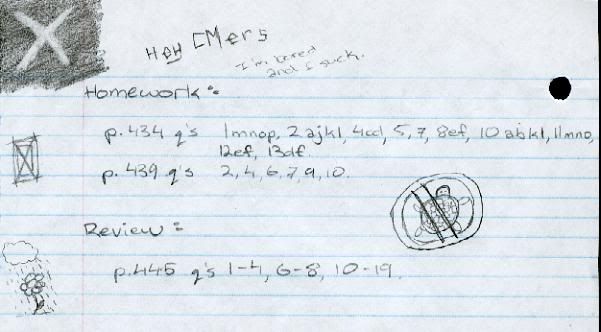 Hey CMers
I'm bored
and I suck.
Homework:
p.434 q's 1mnop, 2ajkl, 4cd, 5, 7, 8ef, 10abkl, 11mno,
12ef, 13df.
p.439 q's 2, 4, 6, 7, 9, 10.
Review:
p.445 q's 1-4, 6-8, 10-19.